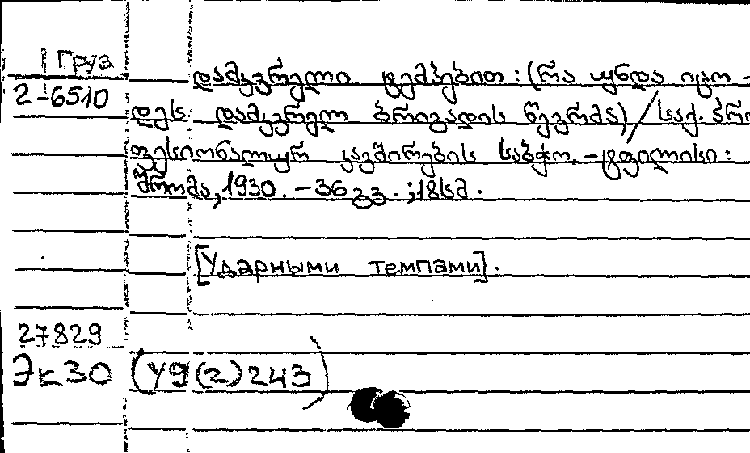 Груз
2-6510
დამკვრელი ტემპებით: (რა უნდა იცო-
დეს დამკვრელ ბრიგადის წევრმა) / საქ. პრო
ფესიონალურ კავშირების საბჭო. - ტფილისი:
შრომა, 1930. - 36 გვ. ; 18სმ.
[Ударными темпами].
27829
Эк30 (У9(2)243)